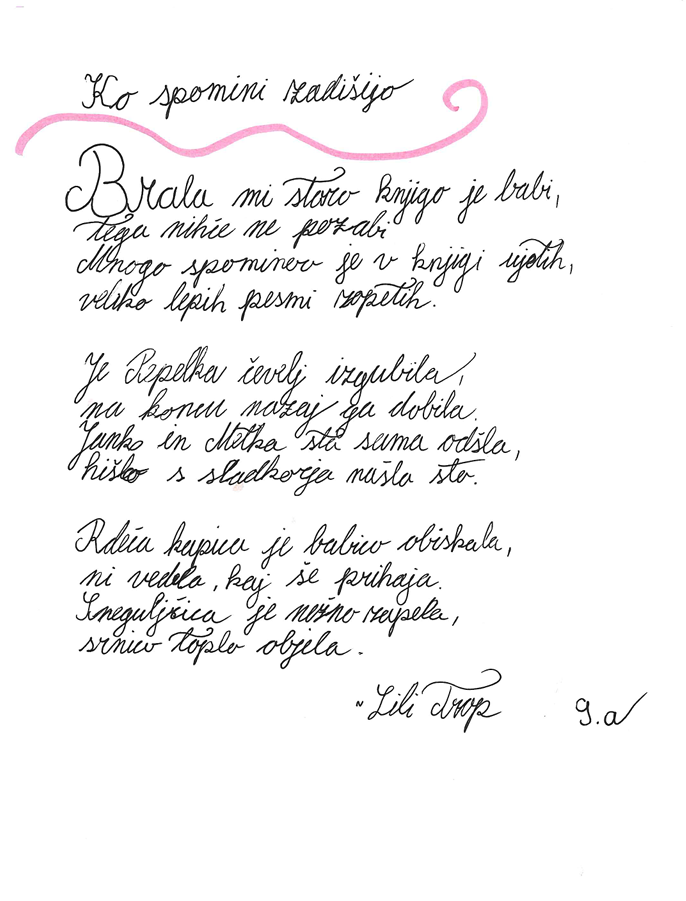 Ko spomini zadišijo
Brala mi staro knjigo je babi,
tega nihče ne pozabi
Mnogo spominov je v knjigi ujetih,
veliko lepih pesmi zapetih.
Je Pepelka čevelj izgubila,
na koncu nazaj ga dobila.
Janko in Metka sta sama odšla,
hiško s sladkorja našla sta.
Rdeča kapica je babico obiskala,
ni vedela, kaj še prihaja.
Sneguljčica je nežno zapela,
srnico toplo objela.
~Lili Trop 9.a